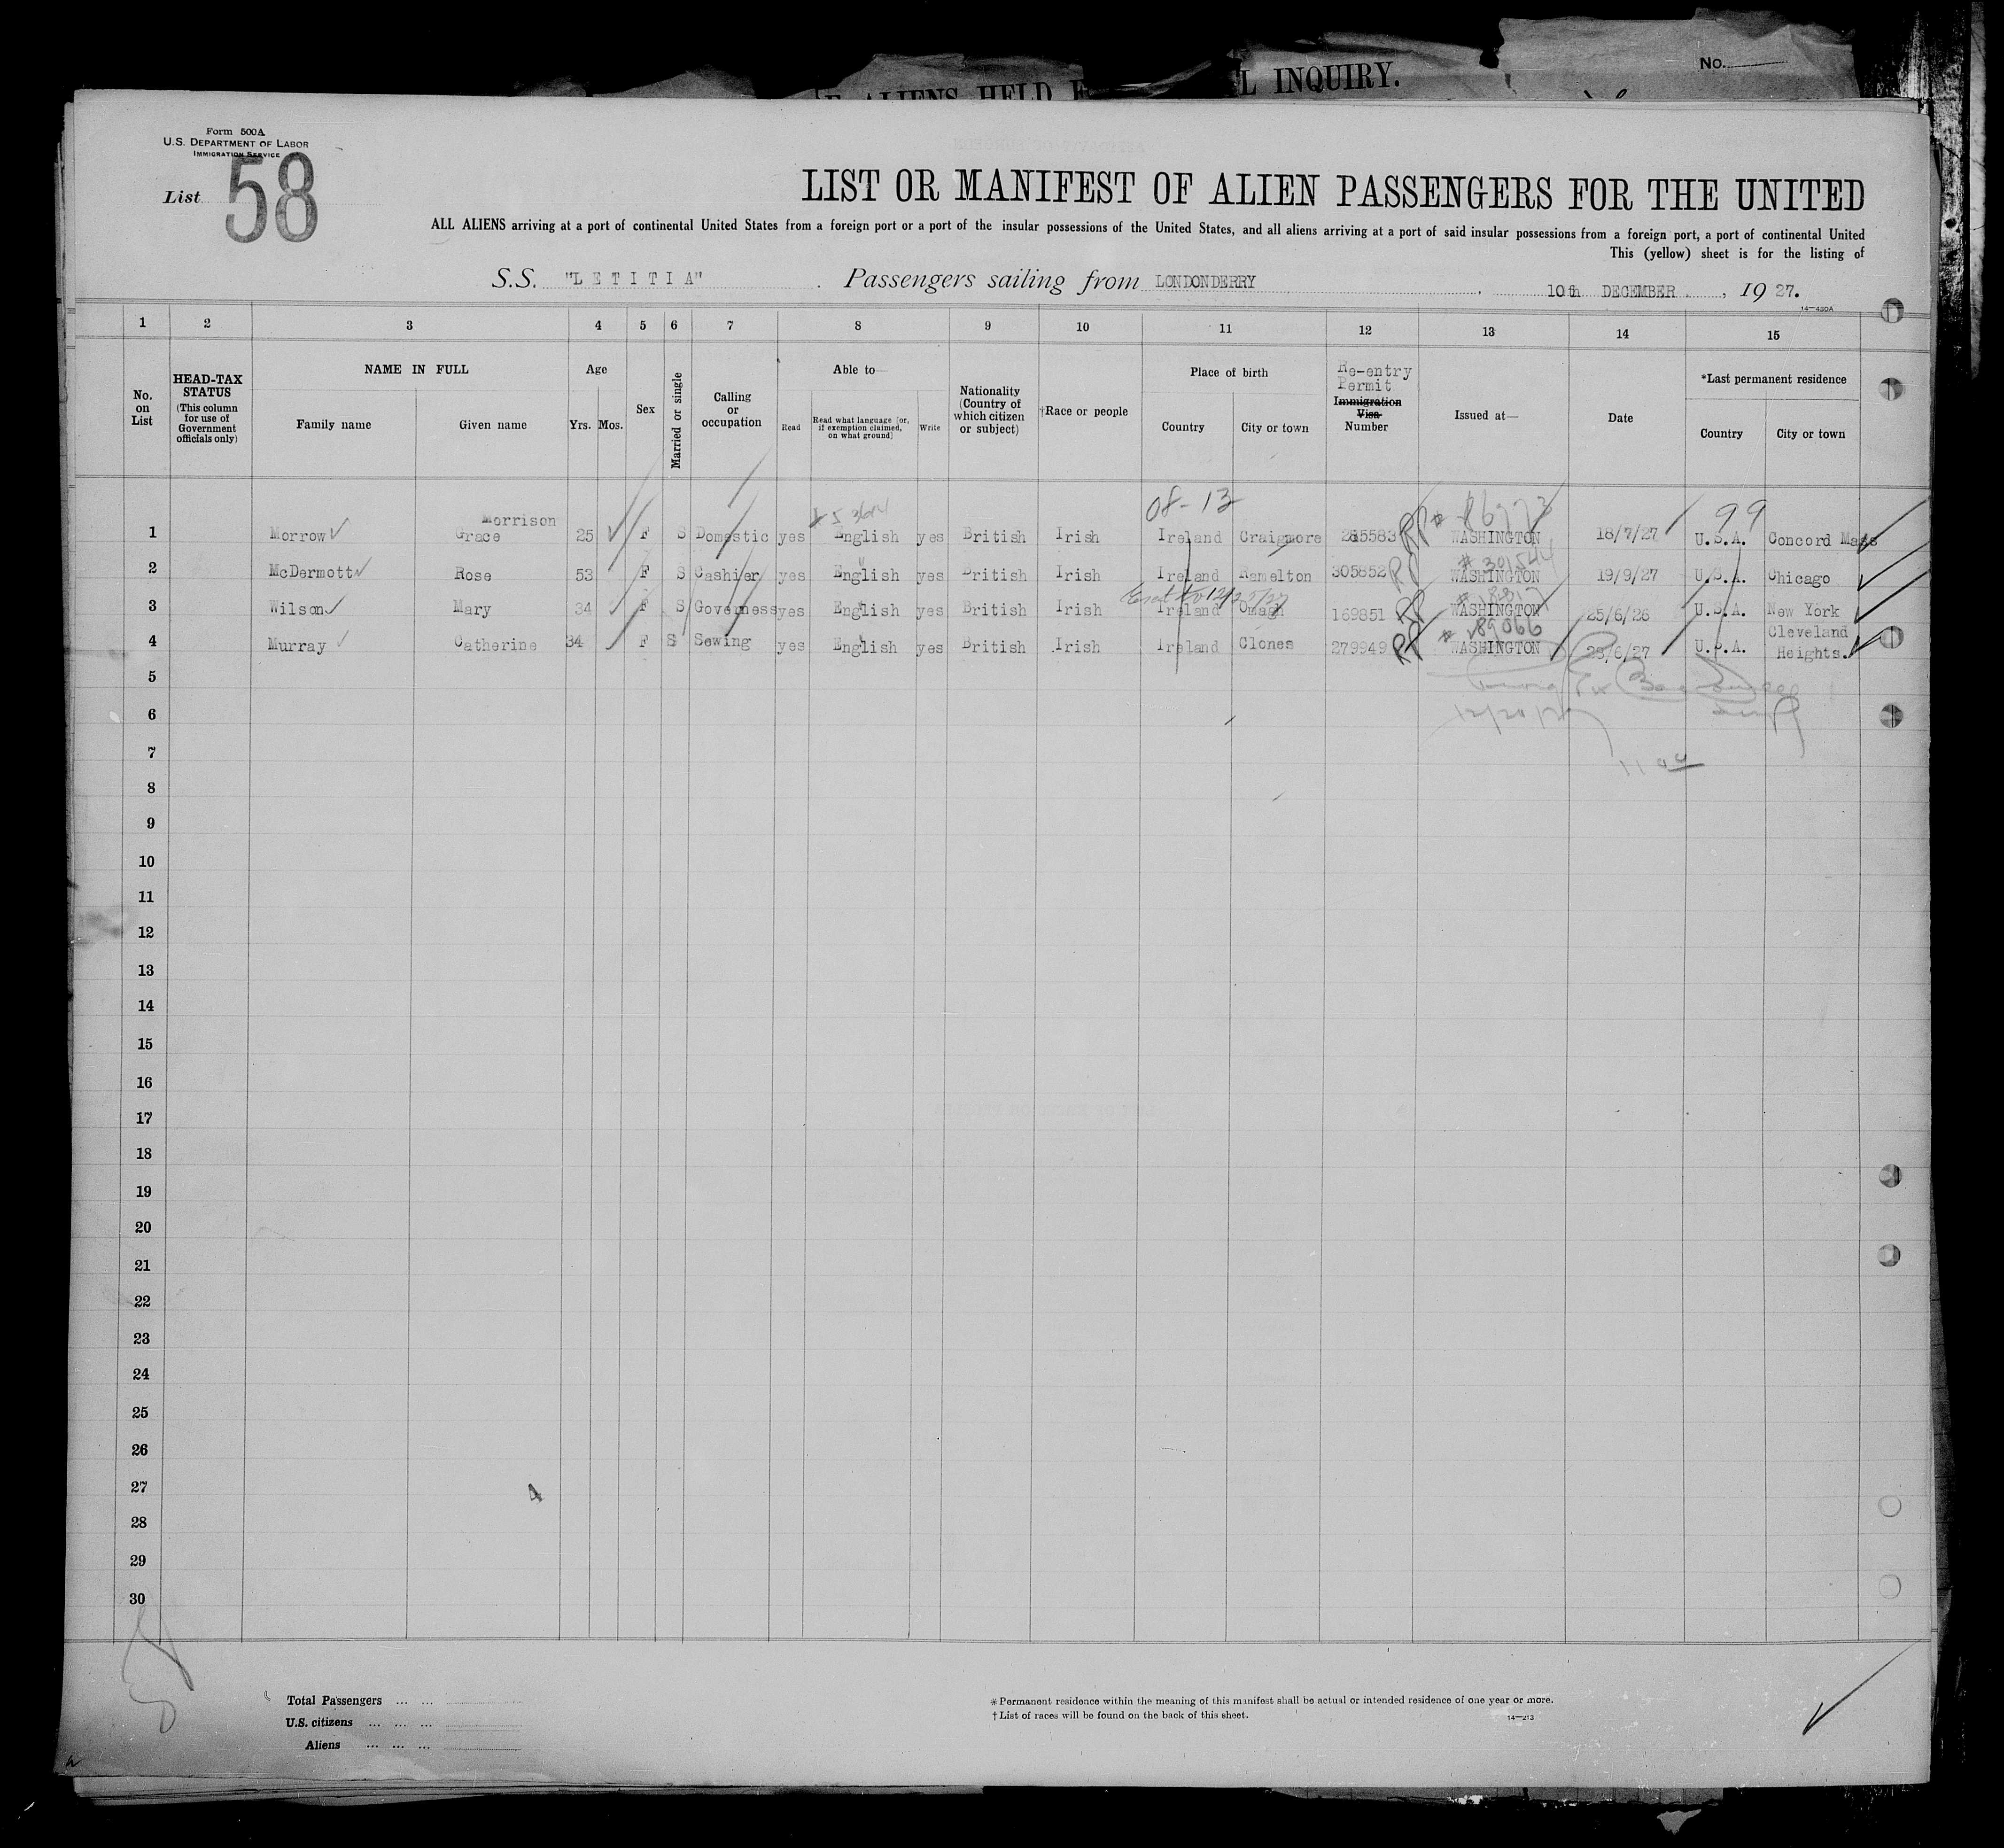 No.
ALIENS HELD F L INQUIRY.
Form 500A
U.S. DEPARTMENT OF LABOR
IMMIGRATION SERVICE
List 58
LIST OR MANIFEST OF ALIEN PASSENGERS FOR THE UNITED
ALL ALIENS arriving at a port of continental United States from a foreign port or a port of the insular possessions of the United States, and all aliens arriving at a port of said insular possessions from a foreign port, a port of continental United
This (yellow) sheet is for the listing of
S.S. "LETITIA" Passengers sailing from LONDONDERRY, 10th DECEMBER, 1927.
14—430A
1 2 3 4 5 6 7 8 9 10 11 12 13 14 15
No. on List
HEAD-TAX STATUS (This column for use of Government officials only)
NAME IN FULL
Family name Given name
Age
Yrs. Mos.
Sex
Married or single
Calling or occupation
Able to—
Read Read what language [or, if exemption claimed, on what ground] Write
Nationality (Country of which citizen or subject)
†Race or people
Place of birth
Country City or town
Re-entry Permit
Immigration Visa Number
Issued at—
Date
*Last permanent residence
Country City or town
08-13 99
Morrison
1 Morrow Grace 25 F S Domestic yes English yes British Irish Ireland Craigmore 285583 RP WASHINGTON 18/7/27 U.S.A. Concord Mass
# 301544
2 McDermott Rose 53 F S Cashier yes English yes British Irish Ireland Ramelton 305852 RP WASHINGTON 19/9/27 U.S.A. Chicago
3 Wilson Mary 34 F S Governess yes English yes British Irish Ireland Omagh 169851 RP WASHINGTON 25/6/26 U.S.A. New York
# 189066
4 Murray Catherine 34 F S Sewing yes English yes British Irish Ireland Clones 279949 RP WASHINGTON 28/6/27 U.S.A. Cleveland Heights.
5
6 12/20/27
7
8
9
10
11
12
13
14
15
16
17
18
19
20
21
22
23
24
25
26
27
28
29
30
Total Passengers ... ...
U.S. citizens ... ... ...
Aliens ... ... ...
*Permanent residence within the meaning of this manifest shall be actual or intended residence of one year or more.
†List of races will be found on the back of this sheet.
14—213